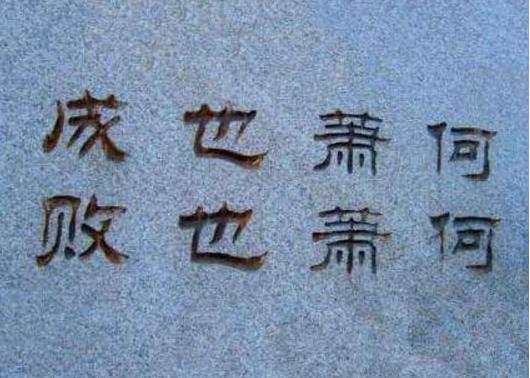 成也萧何
败也萧何